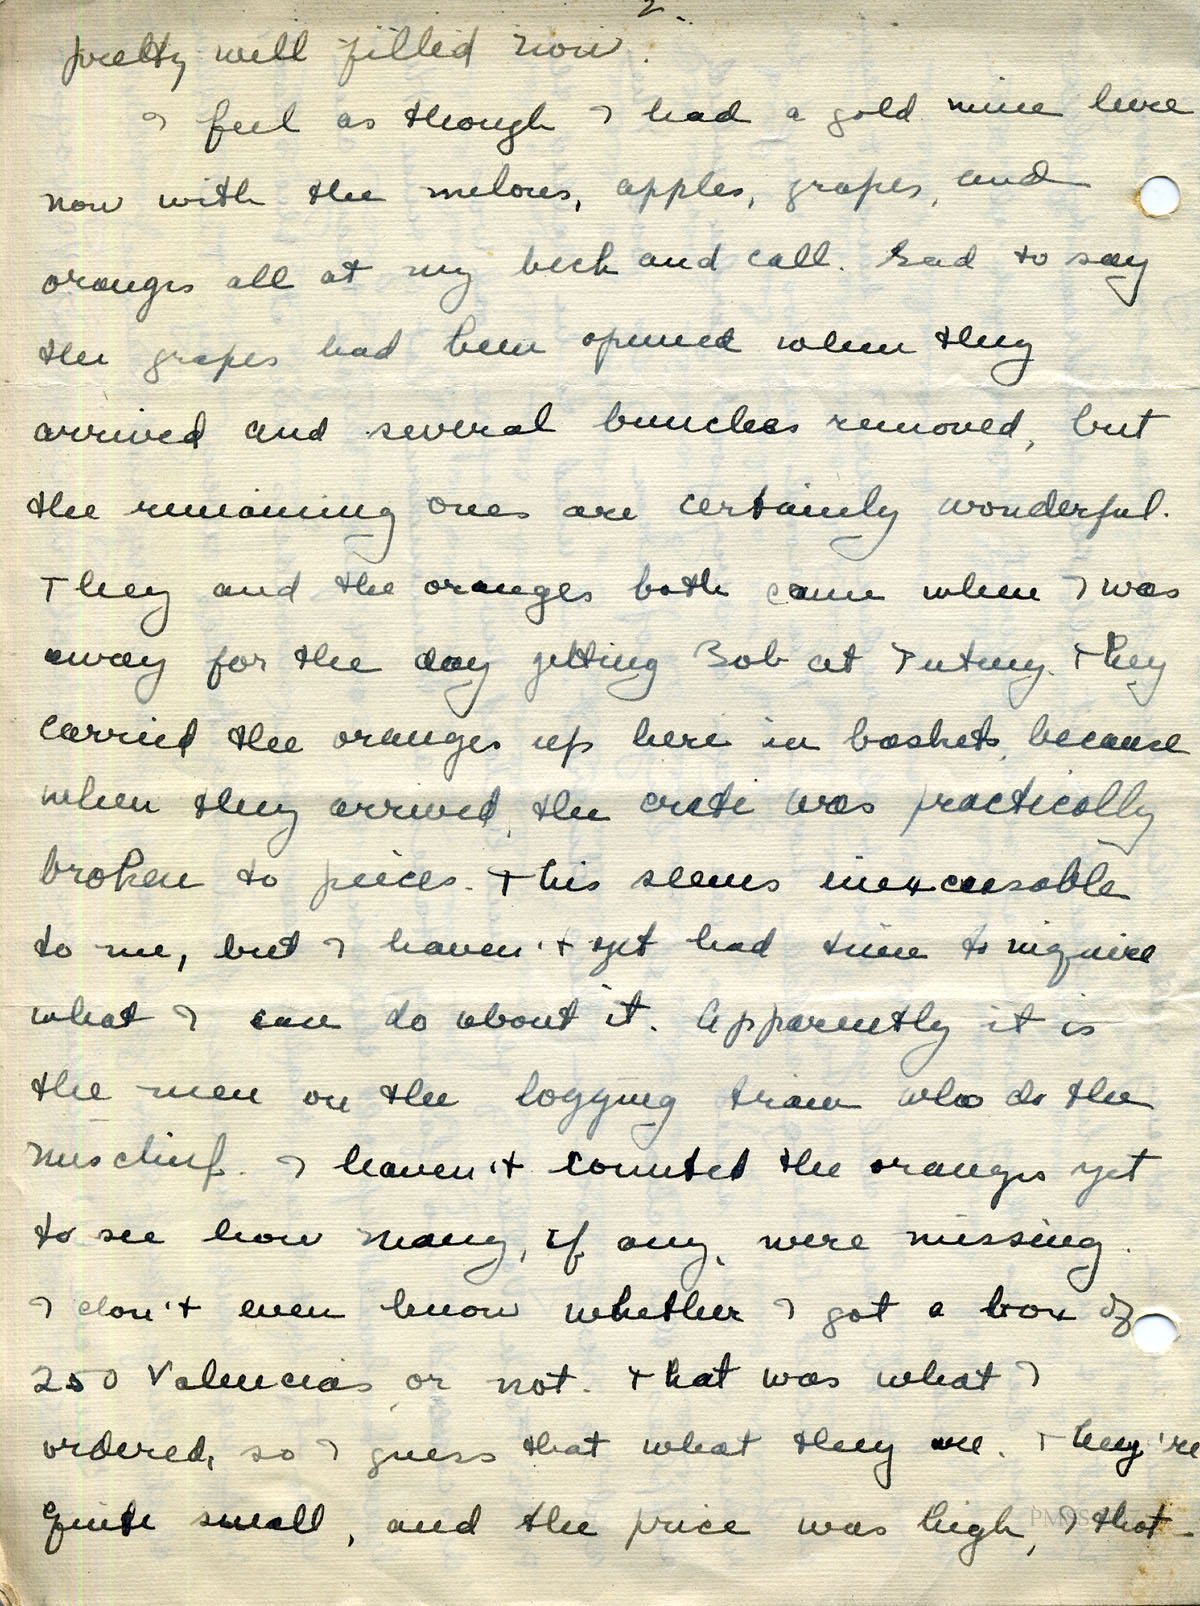 2.
pretty well filled now.
I feel as though I had a gold mine here
now with the melons, apples, grapes, and
oranges all at my beck and call. Sad to say
the grapes had been opened when they
arrived and several bunches removed, but
the remaining ones are certainly wonderful.
They and the oranges both came when I was
away for the day getting Bob at Tutmy. They
carried the oranges up here in baskets, because
when they arrived, the crate was practically
broken to pieces. This seems inexcusable
to me, but I haven't yet had time to inquire
what I can do about it. Apparently it is
the men on the logging train who do the
mischief. I haven't counted the oranges yet
to see how many, if any, were missing.
I don't even know whether I got a box of
250 Valencias or not. That was what I
ordered, so I guess that what they are. They're
quite small, and the price was high, I that-